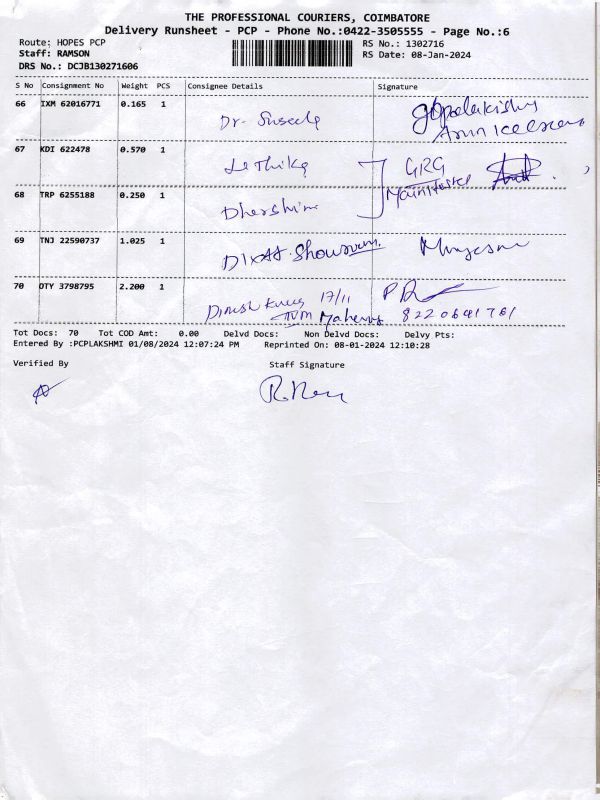 THE PROFESSIONAL COURIERS, COIMBATORE
Delivery Runsheet - PCP - Phone No.:0422-3505555 - Page No.:6
Route: HOPES PCP RS No.: 1302716
Staff: RAMSON RS Date: 08-Jan-2024
DRS No.: DCJB130271606
S No Consignment No Weight PCS Consignee Details Signature
66 IXM 62016771 0.165 1
Dr. Suseela
67 KDI 622478 0.570 1
Lethika GRG
68 TRP 6255188 0.250 1
Dharshini
69 TNJ 22590737 1.025 1
Showroom
70 OTY 3798795 2.200 1
Dinesh 17/11
8220641761
Tot Docs: 70 Tot COD Amt: 0.00 Delvd Docs: Non Delvd Docs: Delvy Pts:
Entered By :PCPLAKSHMI 01/08/2024 12:07:24 PM Reprinted On: 08-01-2024 12:10:28
Verified By Staff Signature